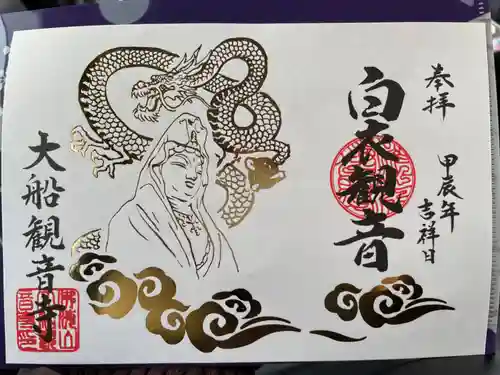 奉拝
甲辰年
吉祥日
白衣観音
大船観音寺